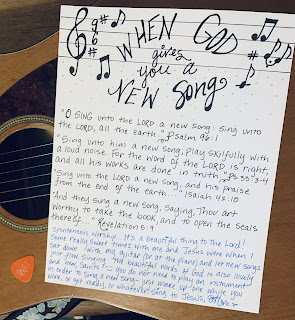 WHEN GOD
gives
you a
NEW Song
"O SING unto the LORD a new song: sing unto
the LORD, all the earth." Psalm 96:1
"Sing unto him a new song; play skilfully with
a loud noise. For the word of the LORD is right;
and all his works are done in truth," Ps 33:3-4
"Sing unto the LORD a new song, and his praise
from the end of the earth..." Isaiah 42:10
And they sung a new song, saying, Thou art
worthy to take the book, and to open the seals
thereof..." Revelation 5:9
Spontaneous worship. It's a beautiful thing to the Lord!
Some really sweet times with me and Jesus were when I
sat alone with my guitar (or at the piano) and let new songs
just flow. Singing the beautiful words of God is also lovely
and new, Saints! You do not need to play an instrument
in order to sing a new song - just wake up one
work, or get ready, or whatever! Sing to Jesus,